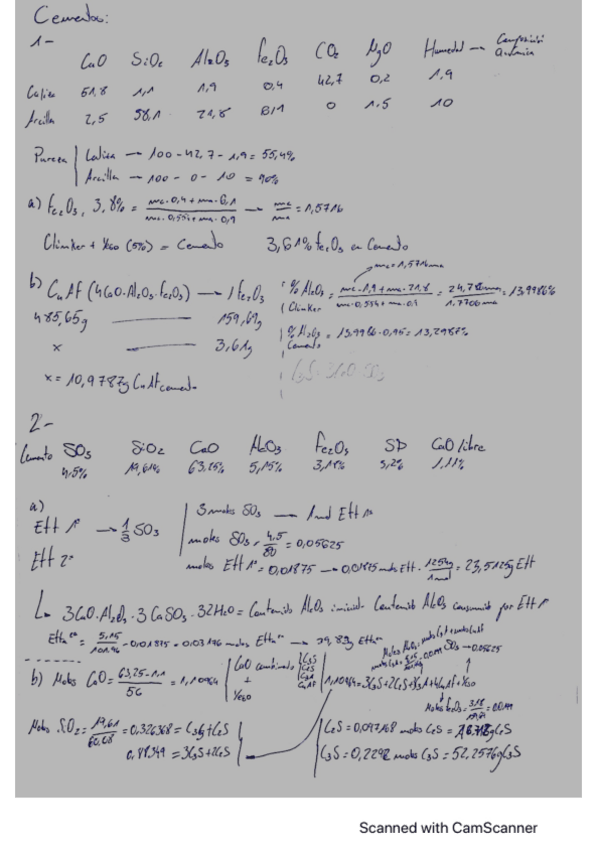 Cementos:
1-
CaO SiO₂ Al₂O₃ Fe₂O₃ CO₂ MgO Humedad — Composición
Caliza 51,8 1,1 1,9 0,4 42,7 0,2 1,9
Arcilla 2,5 58,1 21,8 6,1 0 1,5 10
Pureza | Caliza → 100 - 42,7 - 1,9 = 55,4%
Arcilla → 100 - 0 - 10 = 90%
a) Fe₂O₃, 3,8% = mc·0,4 + ma·6,1 / mc·0,554 + ma·0,9 → mc/ma = 1,5716
Clinker + Yeso (5%) = Cemento 3,61% Fe₂O₃ en Cemento
mc = 1,5716 ma
b) C₄Af (4CaO·Al₂O₃·Fe₂O₃) → 1 Fe₂O₃
485,65g — 159,69g
x — 3,61g
x = 10,9787g C₄Af cemento
% Al₂O₃ Clinker = mc·1,9 + ma·21,8 / mc·0,554 + ma·0,9 = 1,7706 ma = 13,9986%
% Al₂O₃ Cemento = 13,9986·0,95 = 13,2987%
2-
Cemento SO₃ SiO₂ CaO Al₂O₃ Fe₂O₃ CaO libre
4,5% 19,61% 63,25% 5,15% 3,18% 1,11%
a)
Ett 1ª → 1/3 SO₃
Ett 2ª
3 moles SO₃ → 1 mol Ett 1ª
moles SO₃ = 4,5/80 = 0,05625
moles Ett 1ª = 0,01875 → 0,01875 moles Ett · 1254g/1mol = 23,5125g Ett
3CaO·Al₂O₃·3CaSO₄·32H₂O = Contenido Al₂O₃ inicial - Contenido Al₂O₃ consumido por Ett 1ª
5,15/101,96 - 0,01875 = 0,03176 moles Ett 2ª → 39,83g Ett 2ª
b) Moles CaO = 63,25-1,1/56 = 1,10964 | CaO combinado + Yeso
C₃S C₂S C₃A C₄Af
1,10964 = 3C₃S + 2C₂S + 3C₃A + 4C₄Af + Yeso
SO₃ → 0,05625
Moles SiO₂ = 19,61/60,08 = 0,326368 = C₃S + C₂S
0,88349 = 3C₃S + 2C₂S
C₂S = 0,097168 moles C₂S
C₃S = 0,2292 moles C₃S = 52,2576g C₃S
Scanned with CamScanner